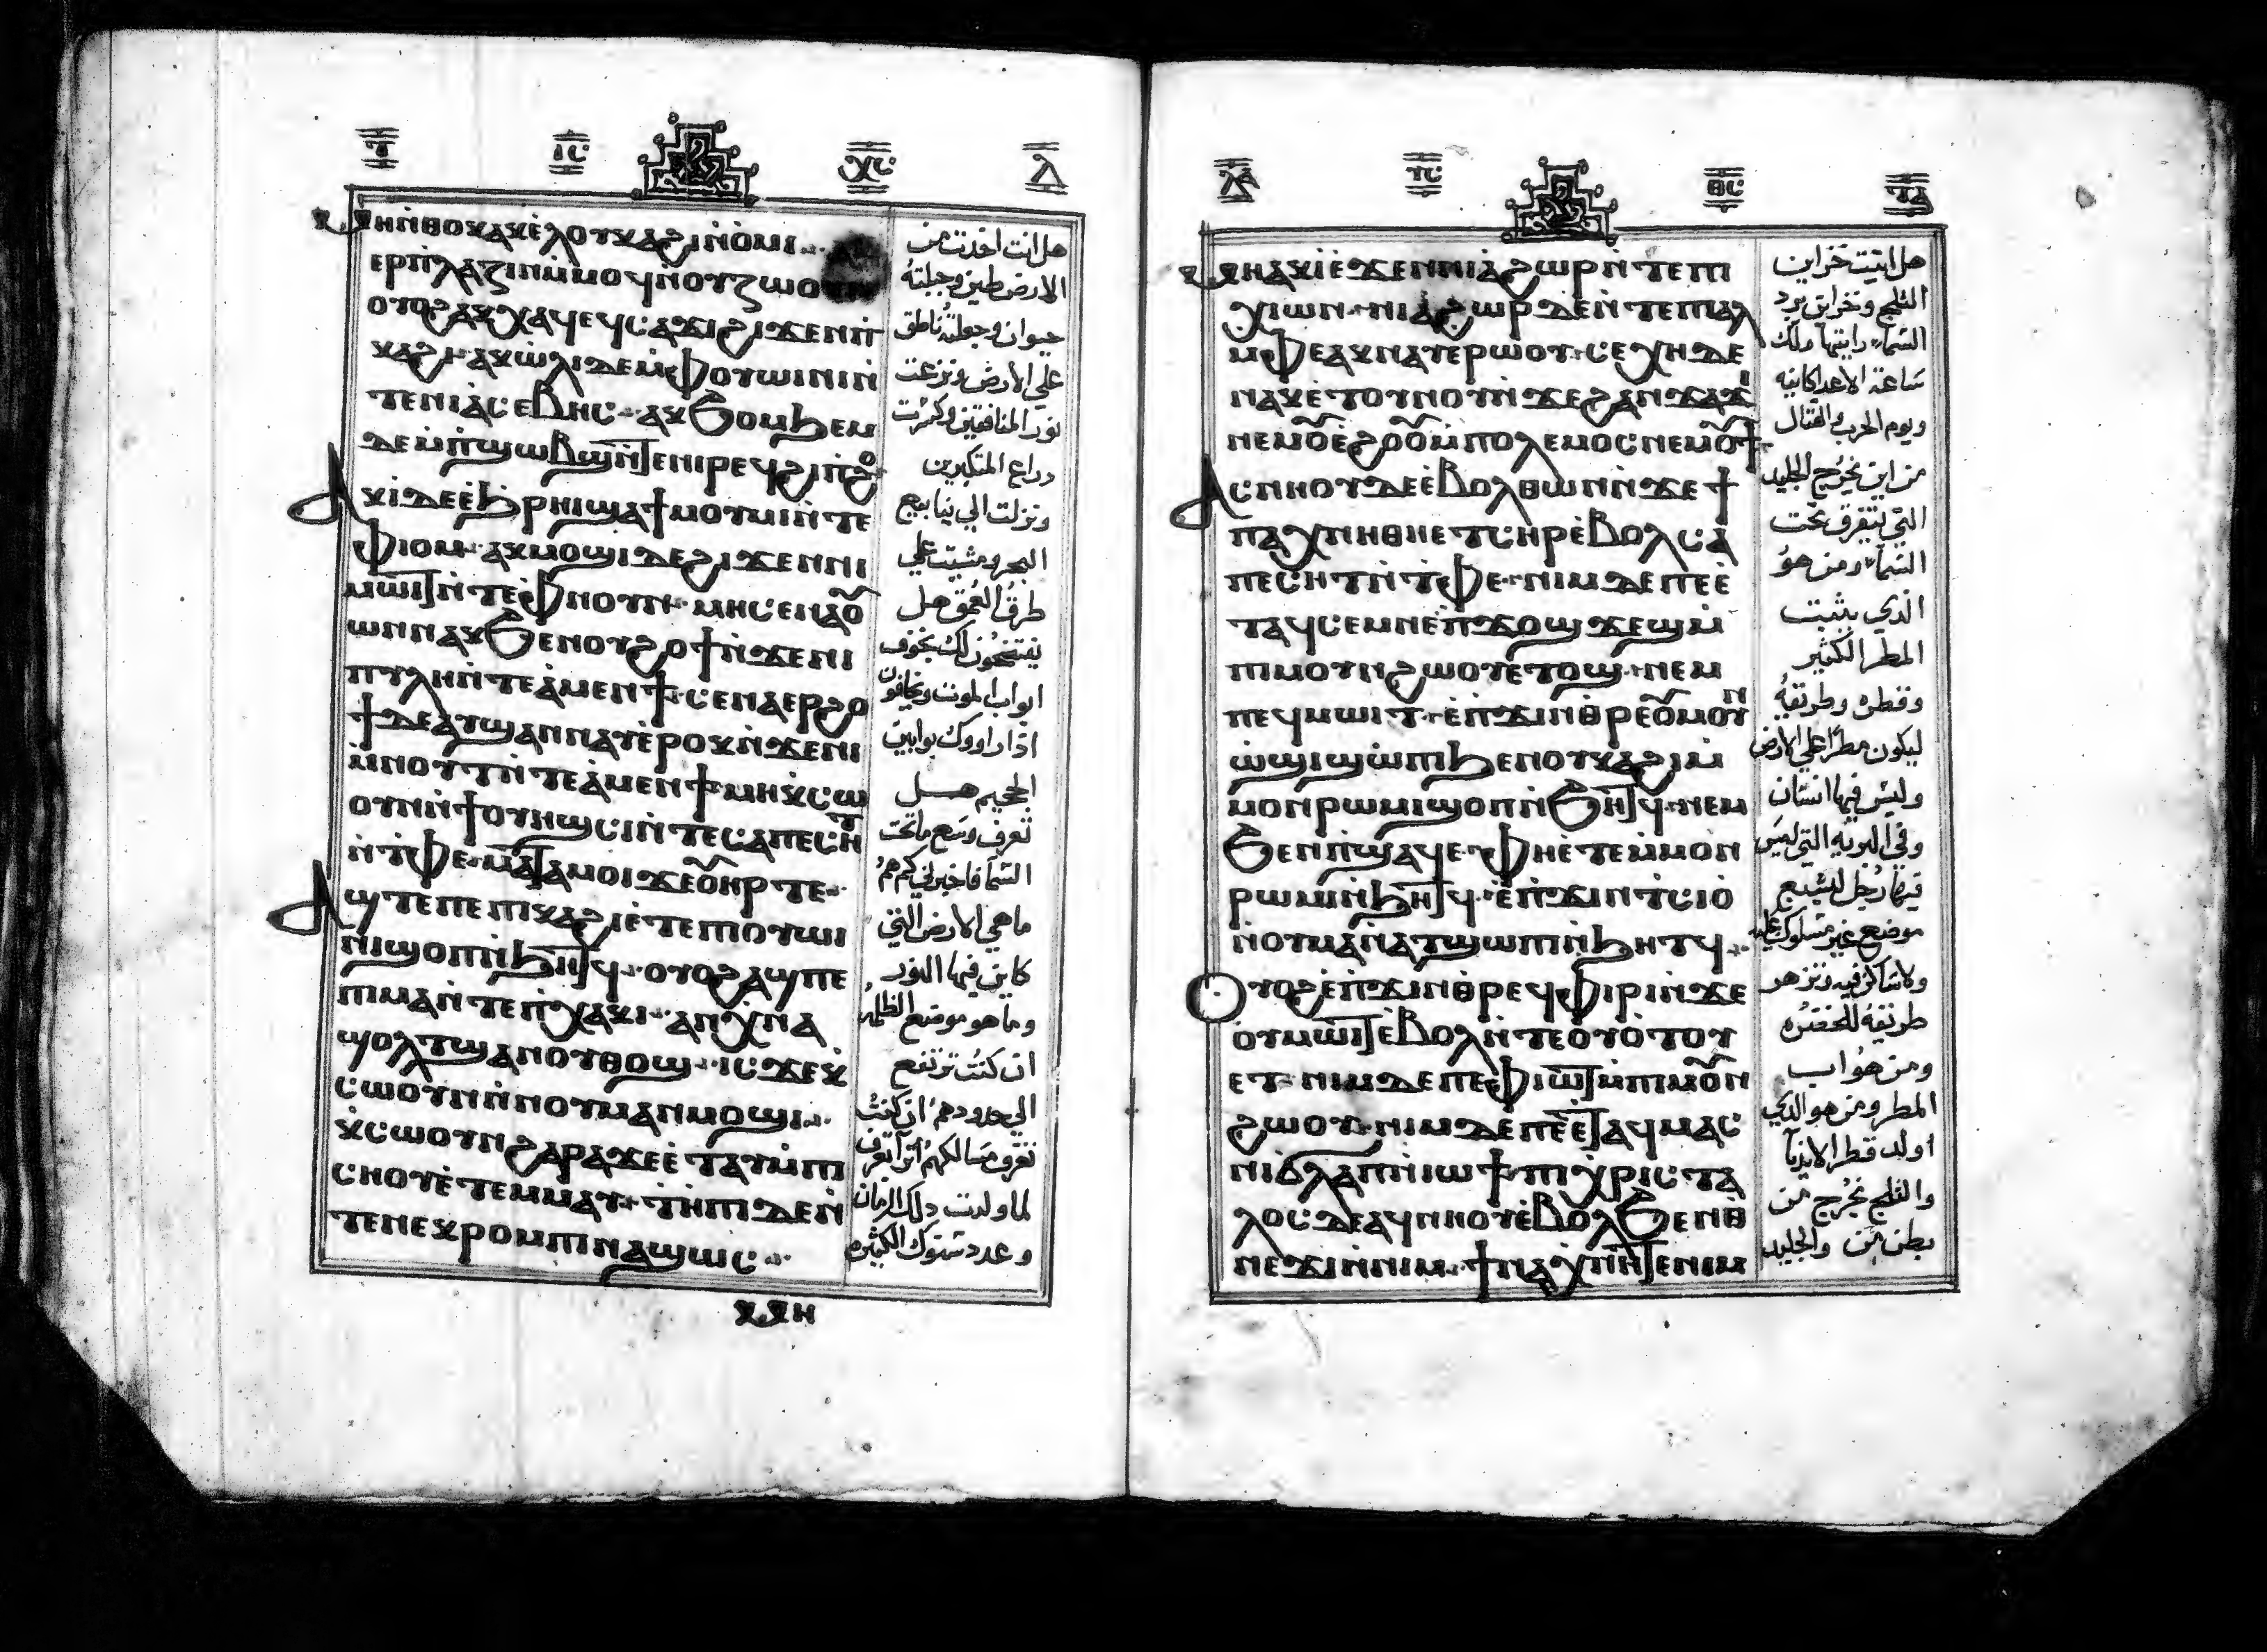 ⲓⲥ ⲭⲥ
ⲙⲏ ⲛ̀ⲑⲟⲕ ⲁⲕϭⲓ ⲗⲟⲩⲕⲁϩⲓ ⲛ̀ⲟⲙⲓ
ⲉⲣⲡ̀ⲗⲁⲍⲓⲛ ⲙ̀ⲙⲟϥ ⲛ̀ⲟⲩⲍⲱⲟⲛ
ⲟⲩⲟϩ ⲁⲕⲭⲁϥ ⲉϥⲥⲁϫⲓ ϩⲓϫⲉⲛ ⲡ̀
ⲕⲁϩⲓ· ⲁⲕⲱ̀ⲗⲓ ⲇⲉ ⲙ̀ⲫⲟⲩⲱⲓⲛⲓ ⲛ̀
ⲧⲉ ⲛⲓⲁ̀ⲥⲉⲃⲏⲥ· ⲁⲕϧⲟⲙϧⲉⲙ
ⲇⲉ ⲙ̀ⲡ̀ϣⲱⲃϣ ⲛ̀ⲧⲉ ⲛⲓⲣⲉϥϭⲓⲛ̀ϩⲟ
ⲁⲕⲓ̀ ⲇⲉ ⲉ̀ϧⲣⲏⲓ ϣⲁ ϯⲙⲟⲩⲙⲓ ⲛ̀ⲧⲉ
ⲫⲓⲟⲙ· ⲁⲕⲙⲟϣⲓ ⲇⲉ ϩⲓϫⲉⲛ ⲛⲓ
ⲙⲱⲓⲧ ⲛ̀ⲧⲉ ⲫ̀ⲛⲟⲩⲛ· ⲙⲏ ⲥⲉⲛⲁⲟ̀
ⲱⲛ ⲛⲁⲕ ϧⲉⲛ ⲟⲩϩⲟϯ ⲛ̀ϫⲉ ⲛⲓ
ⲡⲩⲗⲏ ⲛ̀ⲧⲉ ⲁ̀ⲙⲉⲛϯ· ⲥⲉⲛⲁⲉⲣϩⲟ
ϯ ⲇⲉ ⲁⲩϣⲁⲛⲛⲁⲩ ⲉ̀ⲣⲟⲕ ⲛ̀ϫⲉ ⲛⲓ
ⲙ̀ⲛⲟⲩϯ ⲛ̀ⲧⲉ ⲁ̀ⲙⲉⲛϯ ⲙⲏ ⲕ̀ⲥⲱ
ⲟⲩⲛ ⲛ̀ϯⲟⲩⲏϣⲥⲓ ⲛ̀ⲧⲉ ⲥⲁⲡⲉⲥⲏⲧ
ⲛ̀ⲧ̀ⲫⲉ· ⲙⲁⲧⲁⲙⲟⲓ ϫⲉ ⲟⲩⲏⲣ ⲧⲉ
ⲁϣ ⲧⲉ ⲡⲉ ⲡⲓⲕⲁϩⲓ ⲉ̀ⲧⲉ ⲡⲓⲟⲩⲱⲓ
ⲛⲓ ϣⲟⲡ ⲛ̀ϧⲏⲧϥ· ⲟⲩⲟϩ ⲁϣ ⲡⲉ
ⲡⲓⲙⲁ ⲛ̀ⲧⲉ ⲡ̀ⲭⲁⲕⲓ· ⲁⲛ ⲭ̀ⲛⲁ
ϥⲟⲗⲧ ϣⲁ ⲛⲟⲩⲑⲟϣ· ⲓⲥϫⲉ ⲕ̀
ⲥⲱⲟⲩⲛ ⲛ̀ⲛⲟⲩⲙⲁⲛⲙⲟϣⲓ
ⲕ̀ⲥⲱⲟⲩⲛ ϩⲁⲣⲁ ϫⲉ ⲉ̀ⲧⲁⲩⲙ̀ⲡⲓ
ⲥⲏⲟⲩ ⲉ̀ⲧⲉⲙⲙⲁⲩ· ⲧ̀ⲏⲡⲓ ⲇⲉ ⲛ̀
ⲧⲉ ⲛⲉⲕⲣⲟⲙⲡⲓ ⲛⲁϣⲱⲥ
ⲙⲏ
هل انت اخدت من
الارض طين وجبلته
حيوان وجعلته ناطق
علي الارض ونزعت
نور المنافقين وكسرت
دراع المتكبرين
ونزلت الي ينابيع
البحر ومشيت علي
طرق العمق هل
يفتحون لك بخوف
ابواب الموت ويخافون
اذا راووك بوابين
الجحيم هل
تعرف وسع ما تحت
السما فاخبرني كم هو
ما هي الارض التي
كاين فيها النور
وما هو موضع الظلمه
ان كنت ترتفع
الي حدودهم ان كنت
تعرف مسالكهم اترا تعرف
لما ولدت دلك الزمان
وعدد سنوك الكثيره
ⲩⲥ ⲑⲥ
ⲙⲏ ⲁⲕⲓ̀ ⲉ̀ϫⲉⲛ ⲛⲓⲁ̀ϩⲱⲣ ⲛ̀ⲧⲉ ⲡⲓ
ⲭⲓⲱⲛ· ⲛⲓⲁ̀ϩⲱⲣ ⲇⲉ ⲛ̀ⲧⲉ ⲡⲓⲁⲗ
ⲙ̀ⲫⲉ ⲁⲕⲛⲁⲩ ⲉⲣⲱⲟⲩ· ⲥⲉⲭⲏ ⲇⲉ
ⲛⲁⲕ ⲉ̀ⲧⲟⲩⲛⲟⲩ ⲛ̀ϫⲉ ϩⲁⲛϫⲁϫⲓ
ⲛⲉⲙ ⲟⲩⲉ̀ϩⲟⲟⲩ ⲙ̀ⲡⲟⲗⲉⲙⲟⲥ ⲛⲉⲙ ⲟⲩϯ
ⲁⲥⲛⲏⲟⲩ ⲇⲉ ⲉ̀ⲃⲟⲗ ⲑⲱⲛ ⲛ̀ϫⲉ ϯ
ⲡⲁⲭⲛⲏ ⲑⲏⲉⲧⲥⲏⲣ ⲉ̀ⲃⲟⲗ ⲥⲁ
ⲡⲉⲥⲏⲧ ⲛ̀ⲧ̀ⲫⲉ· ⲛⲓⲙ ⲇⲉ ⲡⲉ ⲉ̀
ⲧⲁϥⲥⲉⲙⲛⲉ ⲡ̀ϫⲟϣϫⲉϣ ⲙ̀
ⲡⲓⲙⲟⲩⲛϩⲱⲟⲩ ⲉ̀ⲧⲟϣ· ⲛⲉⲙ
ⲡⲉϥⲙⲱⲓⲧ· ⲉ̀ⲡ̀ϫⲓⲛⲑⲣⲉ ⲟⲩⲙⲟⲩⲛ
ϩⲱⲟⲩ ϣⲱⲡⲓ ϧⲉⲛ ⲟⲩⲕⲁϩⲓ ⲙ̀
ⲙⲟⲛ ⲣⲱⲙⲓ ϣⲟⲡ ⲛ̀ϧⲏⲧϥ· ⲛⲉⲙ
ϧⲉⲛ ⲡ̀ϣⲁϥⲉ· ⲫⲏⲉ̀ⲧⲉ ⲙⲙⲟⲛ
ⲣⲱⲙⲓ ⲛ̀ϧⲏⲧϥ· ⲉ̀ⲡ̀ϫⲓⲛⲧⲥⲓⲟ
ⲛ̀ⲟⲩⲙⲁ ⲛ̀ⲁⲧϣⲱⲡⲓ ⲛ̀ϧⲏⲧϥ
ⲟⲩⲟϩ ⲉ̀ⲡ̀ϫⲓⲛⲑⲣⲉϥⲫⲓⲣⲓ ⲛ̀ϫⲉ
ⲟⲩⲙⲱⲓⲧ ⲉ̀ⲃⲟⲗ ⲛ̀ⲧⲉ ⲟⲩⲟⲧⲟⲩ
ⲉⲧ· ⲛⲓⲙ ⲇⲉ ⲡⲉ ⲫ̀ⲓⲱⲧ ⲙ̀ⲡⲓⲙⲟⲩⲛ
ϩⲱⲟⲩ· ⲛⲓⲙ ⲇⲉ ⲡⲉ ⲉ̀ⲧⲁϥⲙⲁⲥ
ⲛⲓⲃⲗⲁⲡⲓ ⲛ̀ⲓⲱϯ· ⲡⲓⲭⲣⲓⲥⲧⲁ
ⲗⲟⲥ ⲇⲉ ⲁϥⲛⲏⲟⲩ ⲉ̀ⲃⲟⲗ ϧⲉⲛ ⲑ
ⲛⲉϫⲓ ⲛ̀ⲛⲓⲙ· ϯⲡⲁⲭⲛⲏ ⲧⲉ ⲛⲓⲙ
هل اتيت خزاين
الثلج وخزاين برد
السما رايتها ولك
ساعة الاعدا كاينه
ويوم الحرب والقتال
من اين يخرج الجليد
التي يتفرق تحت
السما ومن هو
الذي يثبت
المطر الكثير
وقطره وطريقه
ليكون مطرا علي الارض
وليس فيها انسان
وفي البريه التي ليس
فيها رجل ليشبع
موضع غير مسلوك عليه
ولا ساكن فيه وتزهو
طريقه للخضره
ومن هو اب
المطر ومن هو الدي
اولد قطر الاندا
والثلج يخرج من
بطن من والجليد